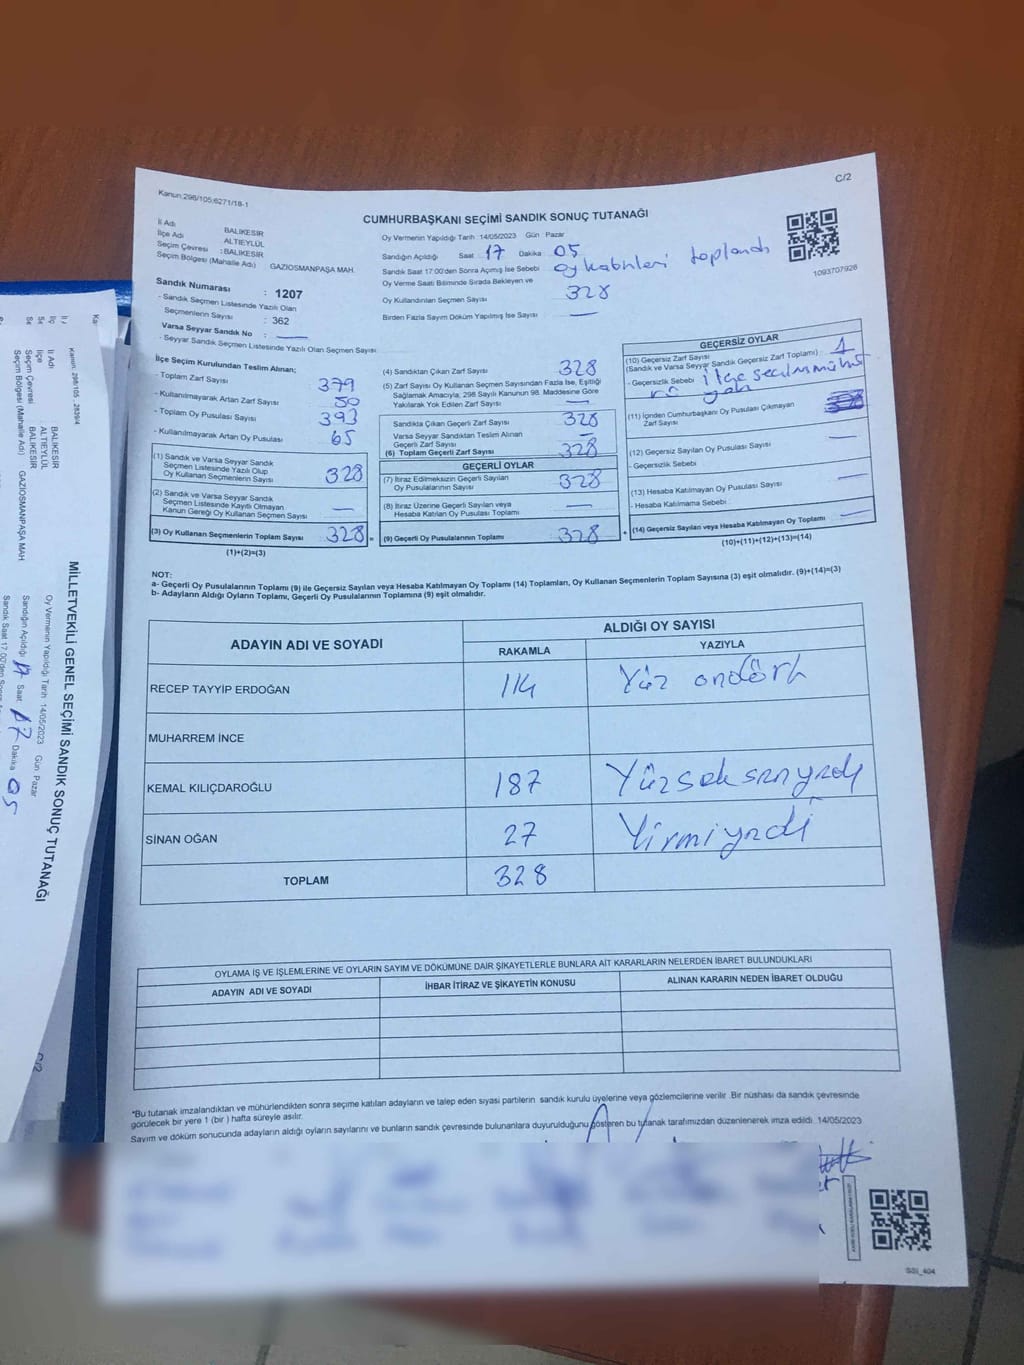 C/2
Kanun:298/105;6271/18-1
CUMHURBAŞKANI SEÇİMİ SANDIK SONUÇ TUTANAĞI
İl Adı BALIKESİR
İlçe Adı ALTIEYLÜL
Seçim Çevresi : BALIKESİR
Seçim Bölgesi (Mahalle Adı) GAZİOSMANPAŞA MAH.
Sandık Numarası : 1207
- Sandık Seçmen Listesinde Yazılı Olan
Seçmenlerin Sayısı : 362
Varsa Seyyar Sandık No : —
- Seyyar Sandık Seçmen Listesinde Yazılı Olan Seçmen Sayısı
Oy Vermenin Yapıldığı Tarih :14/05/2023 Gün : Pazar
Sandığın Açıldığı Saat 17 Dakika 05
Sandık Saat 17:00'den Sonra Açımış İse Sebebi oy kabinleri toplandı
Oy Verme Saati Bitiminde Sırada Bekleyen ve
Oy Kullandırılan Seçmen Sayısı 328
Birden Fazla Sayım Döküm Yapılmış İse Sayısı —
1093707928
İlçe Seçim Kurulundan Teslim Alınan;
- Toplam Zarf Sayısı 379
- Kullanılmayarak Artan Zarf Sayısı 50
- Toplam Oy Pusulası Sayısı 393
- Kullanılmayarak Artan Oy Pusulası 65
(1) Sandık ve Varsa Seyyar Sandık
Seçmen Listesinde Yazılı Olup
Oy Kullanan Seçmenlerin Sayısı 328
(2) Sandık ve Varsa Seyyar Sandık
Seçmen Listesinde Kayıtlı Olmayan
Kanun Gereği Oy Kullanan Seçmen Sayısı —
(3) Oy Kullanan Seçmenlerin Toplam Sayısı 328 =
(1)+(2)=(3)
(4) Sandıktan Çıkan Zarf Sayısı 328
(5) Zarf Sayısı Oy Kullanan Seçmen Sayısından Fazla İse, Eşitliği
Sağlamak Amacıyla, 298 Sayılı Kanunun 98. Maddesine Göre
Yakılarak Yok Edilen Zarf Sayısı —
Sandıkta Çıkan Geçerli Zarf Sayısı 328
Varsa Seyyar Sandıktan Teslim Alınan
Geçerli Zarf Sayısı —
(6) Toplam Geçerli Zarf Sayısı 328
GEÇERLİ OYLAR
(7) İtiraz Edilmeksizin Geçerli Sayılan
Oy Pusulalarının Sayısı 328
(8) İtiraz Üzerine Geçerli Sayılan veya
Hesaba Katılan Oy Pusulası Toplamı —
(9) Geçerli Oy Pusulalarının Toplamı 328 +
GEÇERSİZ OYLAR
(10) Geçersiz Zarf Sayısı
(Sandık ve Varsa Seyyar Sandık Geçersiz Zarf Toplamı) : 1
- Geçersizlik Sebebi ilçe seçim mühü
rü yok
(11) İçinden Cumhurbaşkanı Oy Pusulası Çıkmayan
Zarf Sayısı
(12) Geçersiz Sayılan Oy Pusulası Sayısı —
- Geçersizlik Sebebi
(13) Hesaba Katılmayan Oy Pusulası Sayısı —
- Hesaba Katılmama Sebebi
(14) Geçersiz Sayılan veya Hesaba Katılmayan Oy Toplamı —
(10)+(11)+(12)+(13)=(14)
NOT:
a- Geçerli Oy Pusulalarının Toplamı (9) ile Geçersiz Sayılan veya Hesaba Katılmayan Oy Toplamı (14) Toplamları, Oy Kullanan Seçmenlerin Toplam Sayısına (3) eşit olmalıdır. (9)+(14)=(3)
b- Adayların Aldığı Oyların Toplamı, Geçerli Oy Pusulalarının Toplamına (9) eşit olmalıdır.
ADAYIN ADI VE SOYADI ALDIĞI OY SAYISI
RAKAMLA YAZIYLA
RECEP TAYYİP ERDOĞAN 114 Yüz ondört
MUHARREM İNCE
KEMAL KILIÇDAROĞLU 187 Yüzseksenyedi
SİNAN OĞAN 27 Yirmiyedi
TOPLAM 328
OYLAMA İŞ VE İŞLEMLERİNE VE OYLARIN SAYIM VE DÖKÜMÜNE DAİR ŞİKAYETLERLE BUNLARA AİT KARARLARIN NELERDEN İBARET BULUNDUKLARI
ADAYIN ADI VE SOYADI İHBAR İTİRAZ VE ŞİKAYETİN KONUSU ALINAN KARARIN NEDEN İBARET OLDUĞU
*Bu tutanak imzalandıktan ve mühürlendikten sonra seçime katılan adayların ve talep eden siyasi partilerin sandık kurulu üyelerine veya gözlemcilerine verilir. Bir nüshası da sandık çevresinde
görülecek bir yere 1 (bir ) hafta süreyle asılır.
Sayım ve döküm sonucunda adayların aldığı oyların sayılarını ve bunların sandık çevresinde bulunanlara duyurulduğunu gösteren bu tutanak tarafımızdan düzenlenerek imza edildi. 14/05/2023
SSI_404
Kanun: 298/105 , 2839/4
MİLLETVEKİLİ GENEL SEÇİMİ SANDIK SONUÇ TUTANAĞI
İl Adı BALIKESİR
İlçe ALTIEYLÜL
Seçim Çevresi BALIKESİR
Seçim Bölgesi (Mahalle Adı) GAZİOSMANPAŞA MAH.
Oy Vermenin Yapıldığı Tarih :14/05/2023 Gün: Pazar
Sandığın Açıldığı Saat 17 Dakika 05
C/2